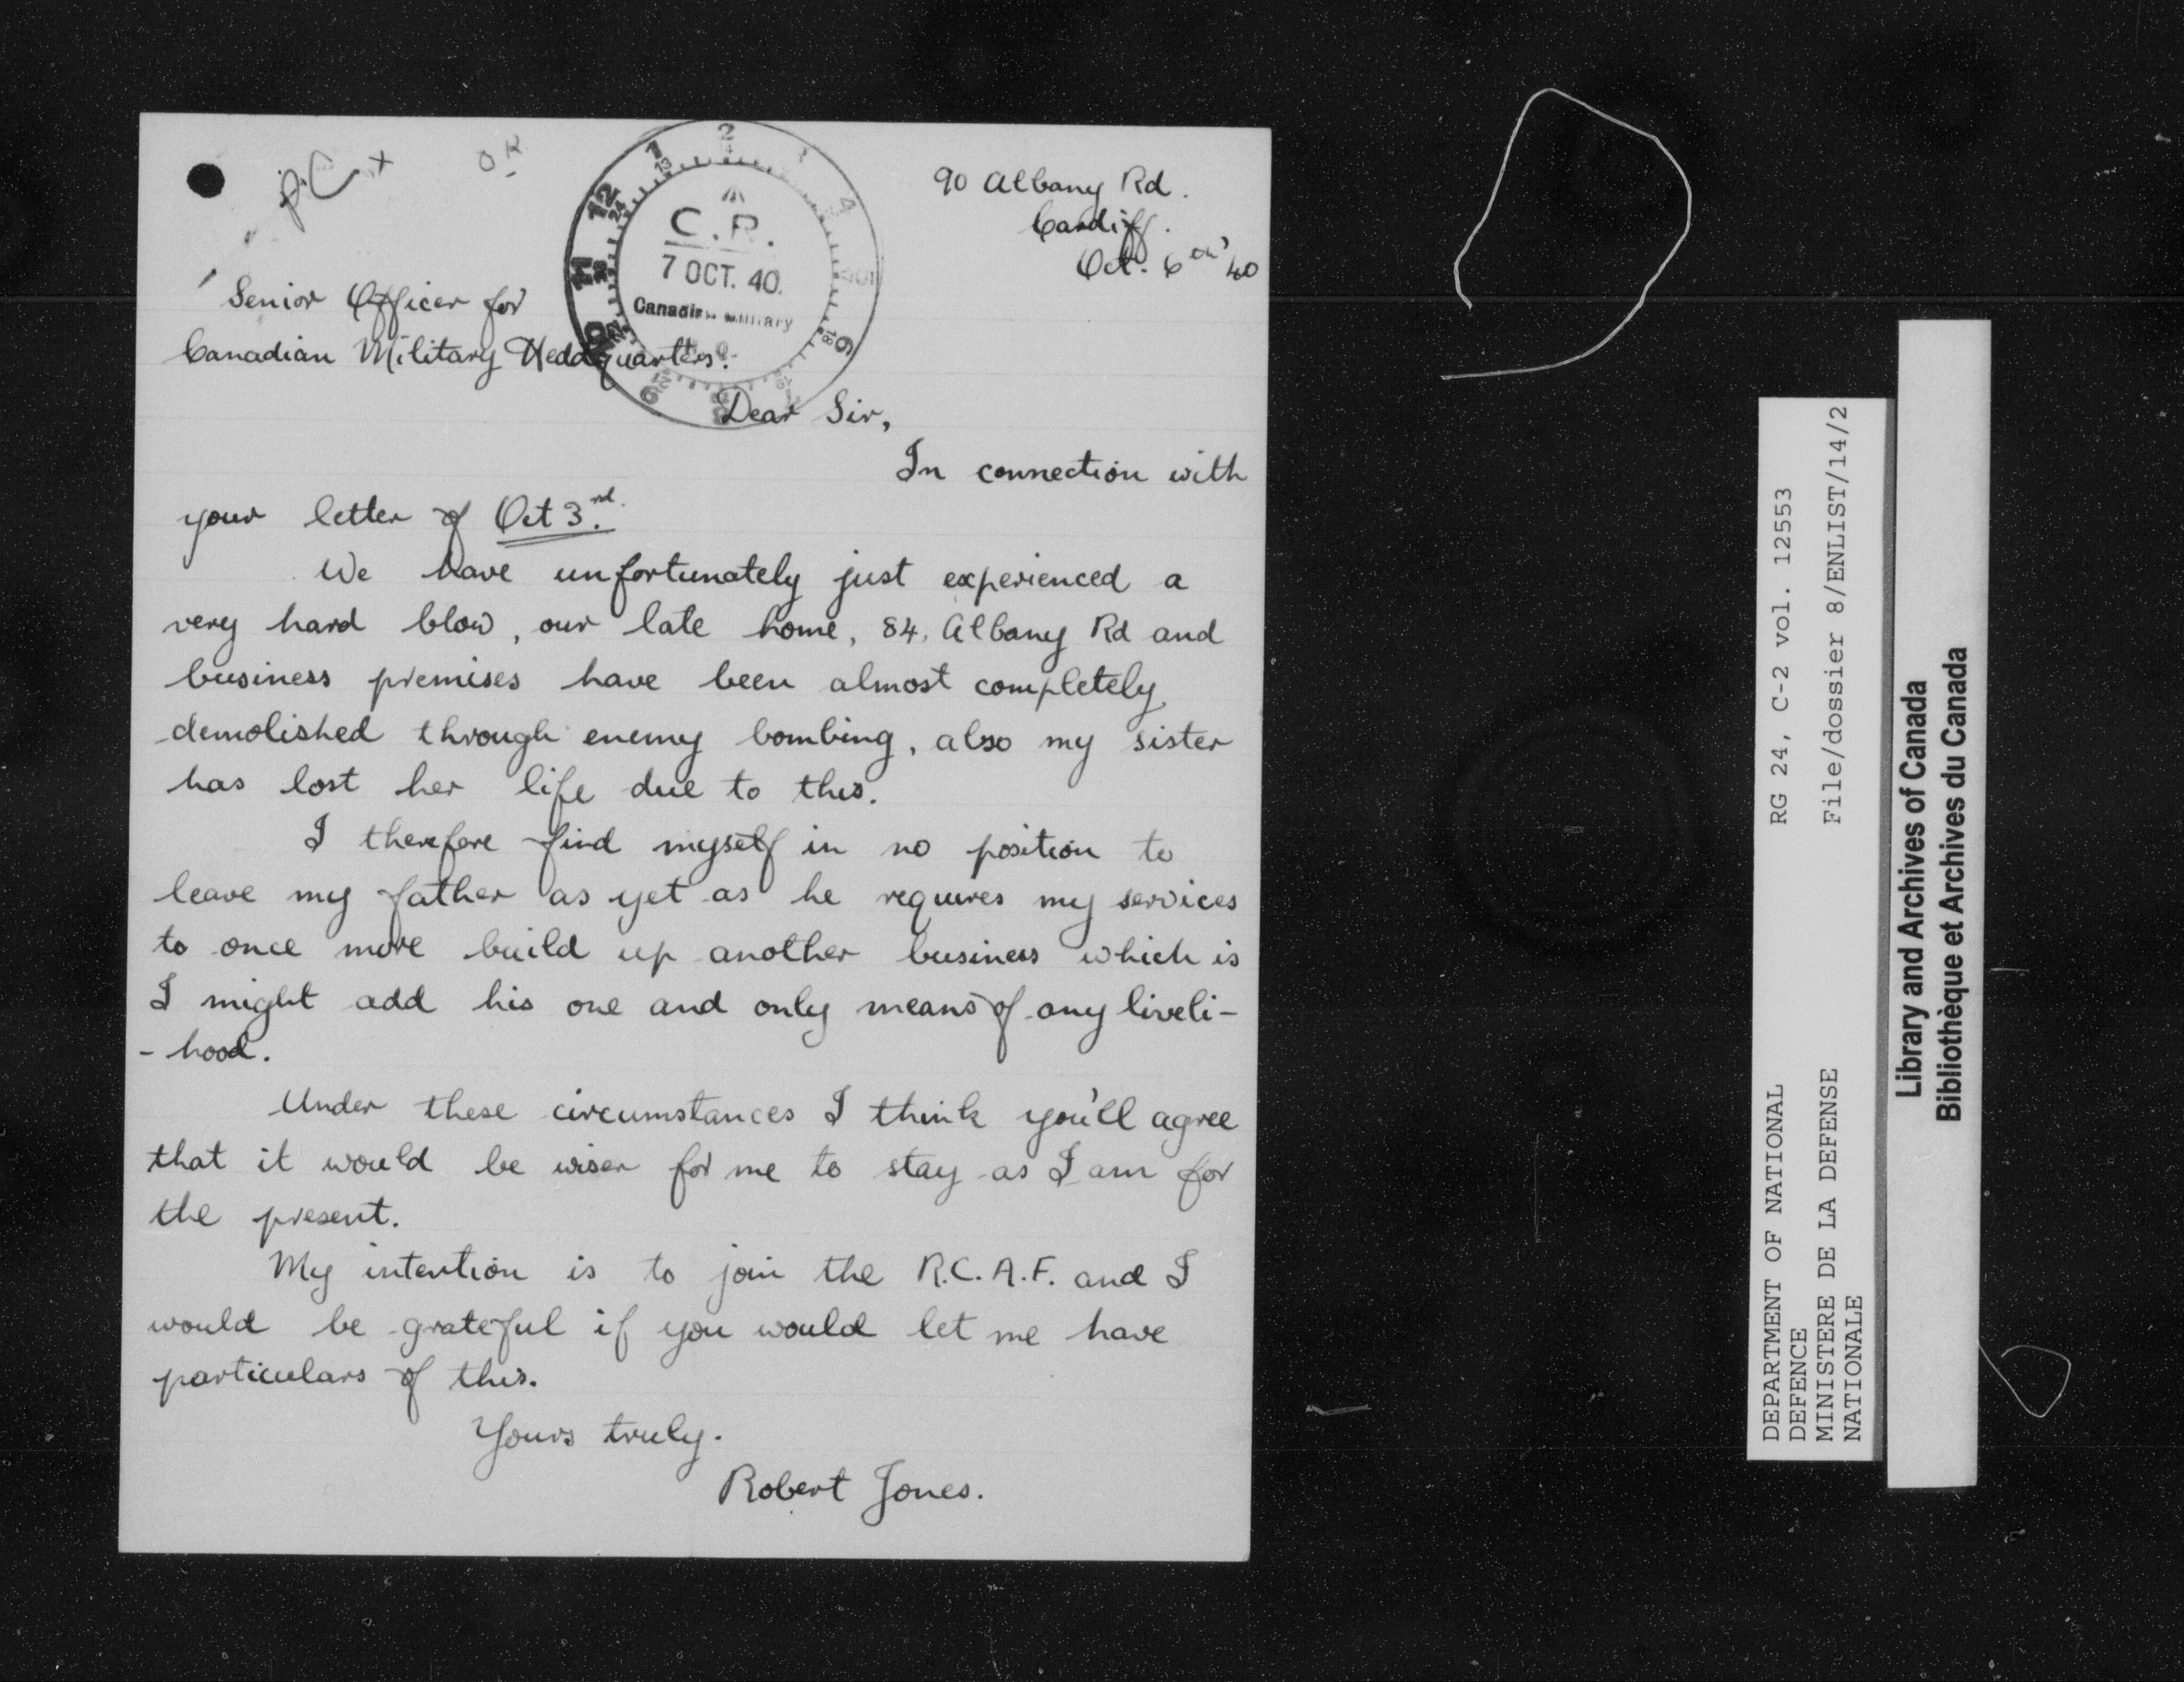 PC +
OR
90 Albany Rd.
Cardiff.
Oct. 6th '40
C.R.
7 OCT. 40.
Canadian Military
Senior Officer for
Canadian Military Headquarters.
Dear Sir,
In connection with
your letter of Oct 3rd.
We have unfortunately just experienced a
very hard blow, our late home, 84, Albany Rd and
business premises have been almost completely
demolished through enemy bombing, also my sister
has lost her life due to this.
I therefore find myself in no position to
leave my father as yet as he requires my services
to once more build up another business which is
I might add his one and only means of any liveli-
- hood.
Under these circumstances I think you'll agree
that it would be wiser for me to stay as I am for
the present.
My intention is to join the R.C.A.F. and I
would be grateful if you would let me have
particulars of this.
Yours truly.
Robert Jones.
DEPARTMENT OF NATIONAL RG 24, C-2 vol. 12553
DEFENCE
MINISTERE DE LA DEFENSE File/dossier 8/ENLIST/14/2
NATIONALE
Library and Archives of Canada
Bibliothèque et Archives du Canada